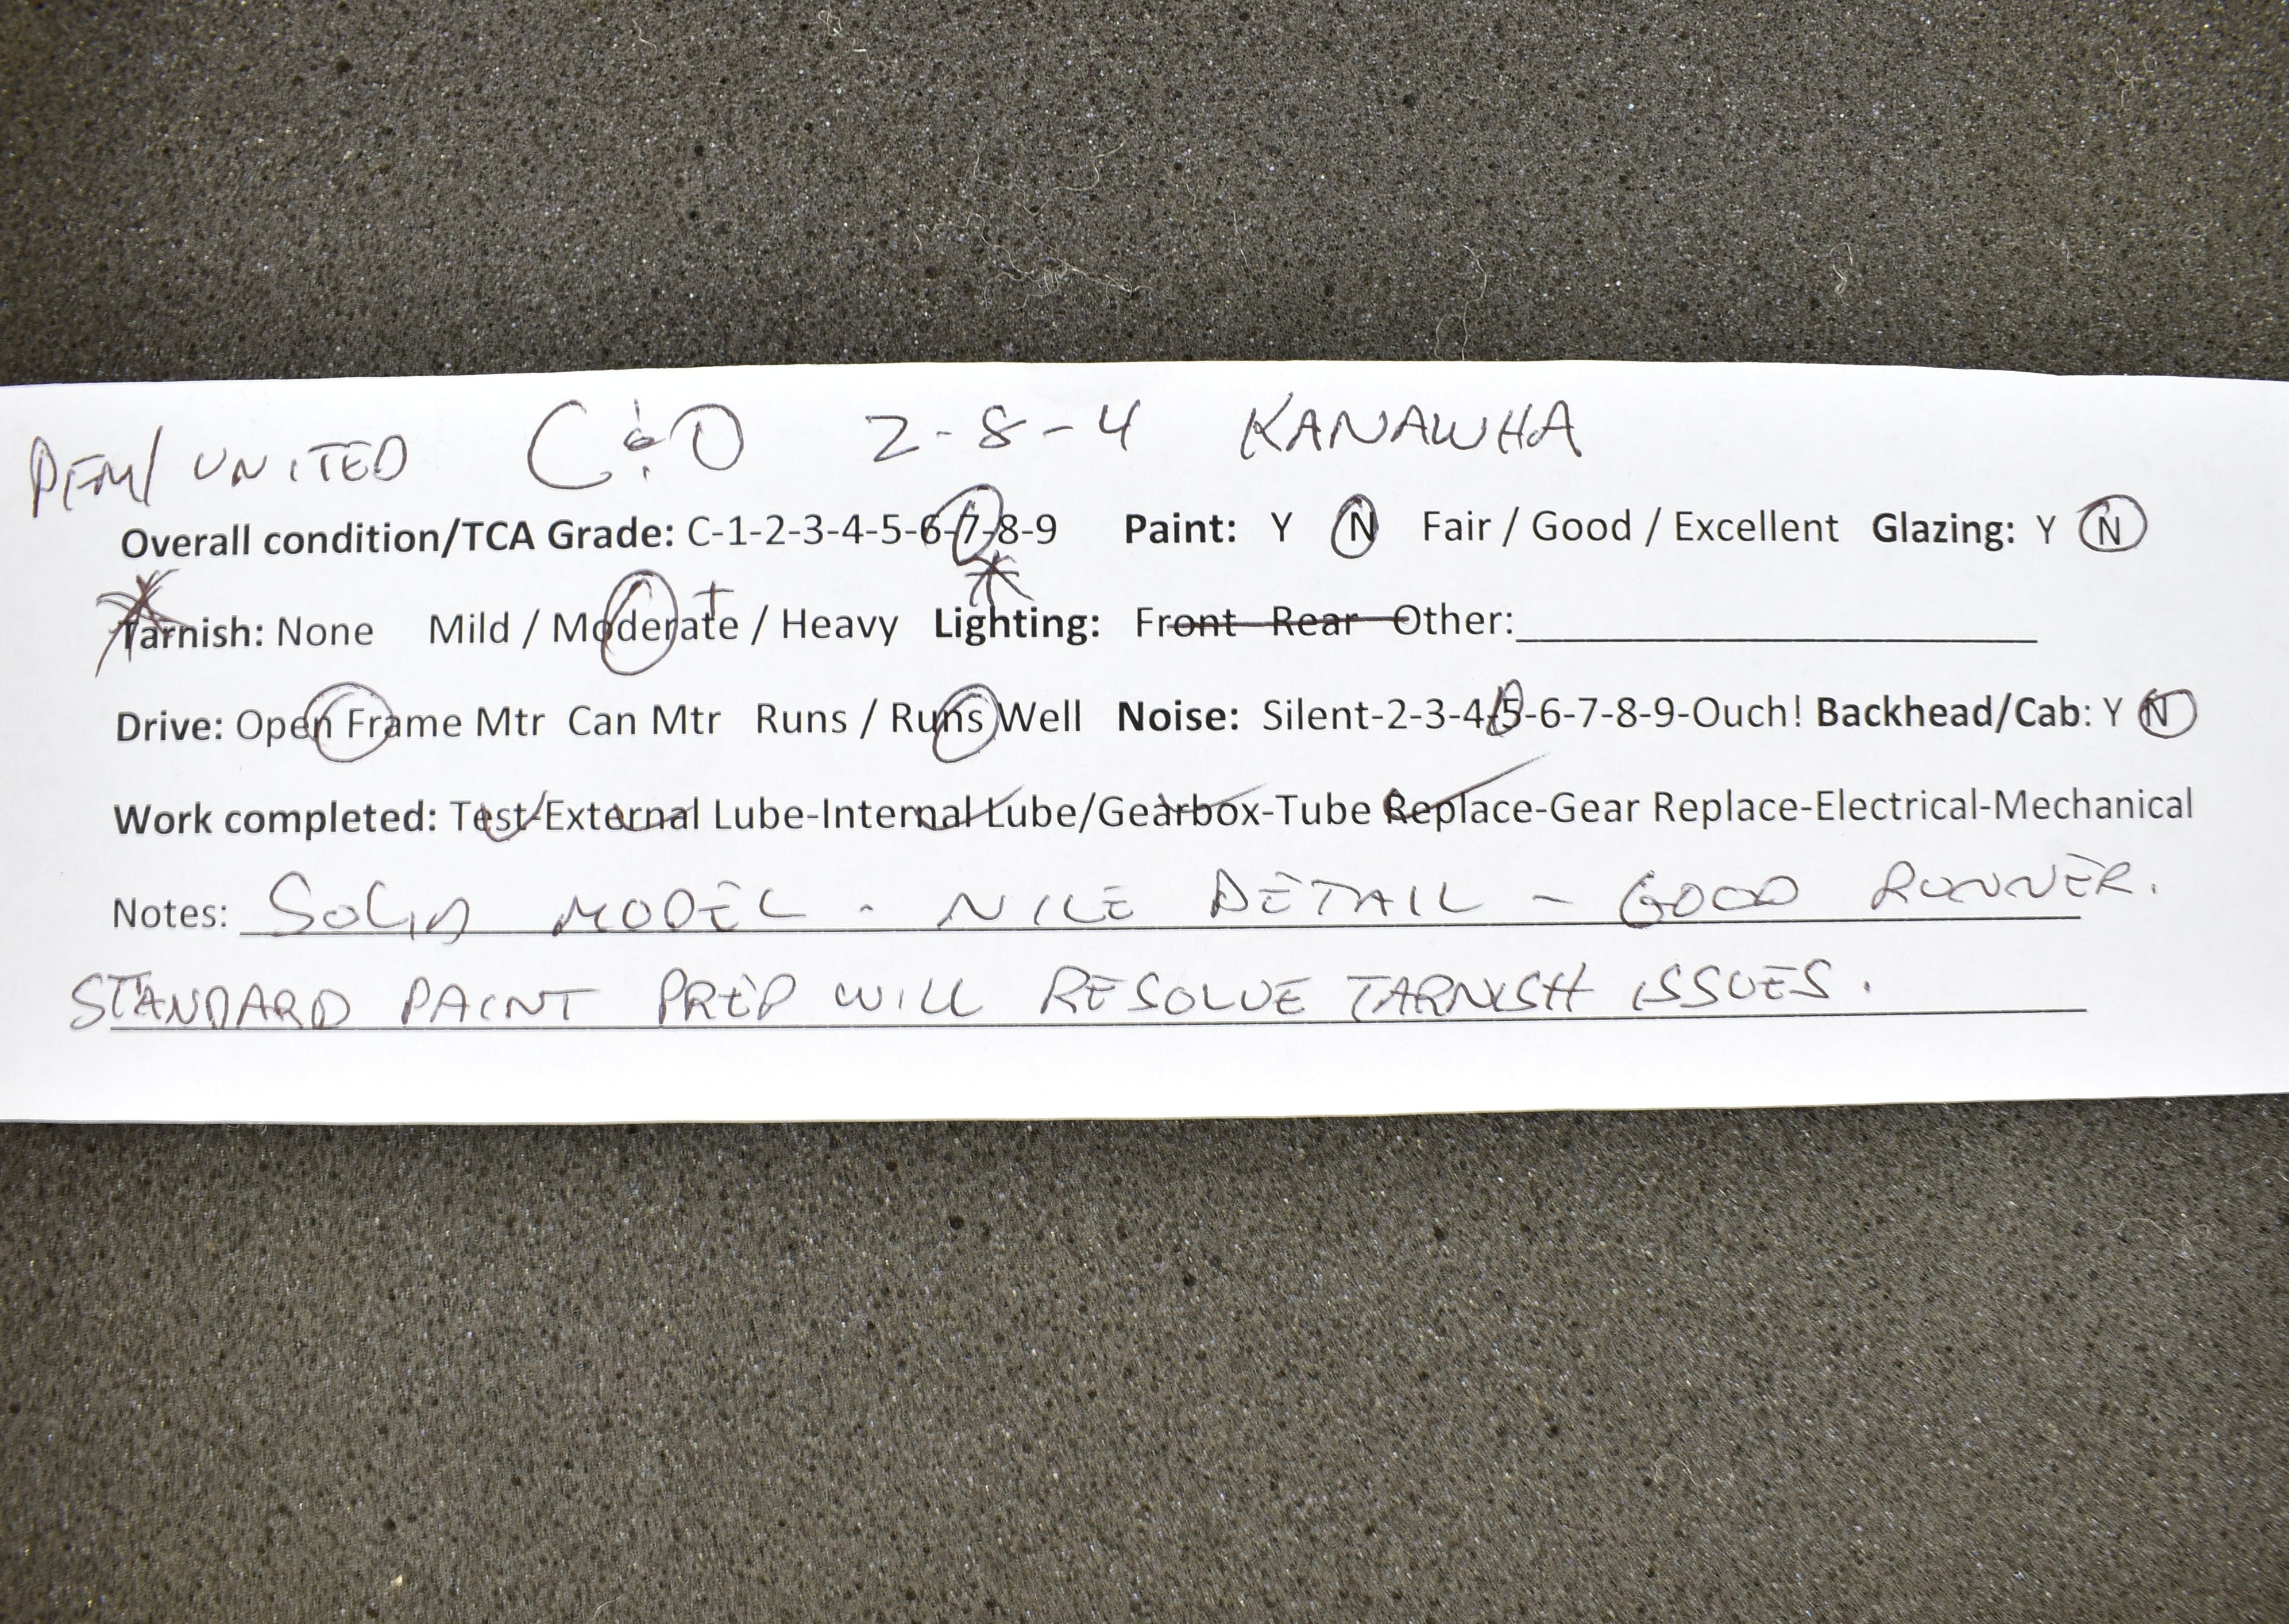 PFM/ UNITED C&O 2-8-4 KANAWHA
Overall condition/TCA Grade: C-1-2-3-4-5-6-7-8-9 Paint: Y N Fair / Good / Excellent Glazing: Y N
Tarnish: None Mild / Moderate / Heavy Lighting: Front Rear Other:
Drive: Open Frame Mtr Can Mtr Runs / Runs Well Noise: Silent-2-3-4-5-6-7-8-9-Ouch! Backhead/Cab: Y N
Work completed: Test-External Lube-Internal Lube/Gearbox-Tube Replace-Gear Replace-Electrical-Mechanical
Notes: SOLID MODEL - NICE DETAIL - GOOD RUNNER.
STANDARD PAINT PREP WILL RESOLVE TARNISH ISSUES.